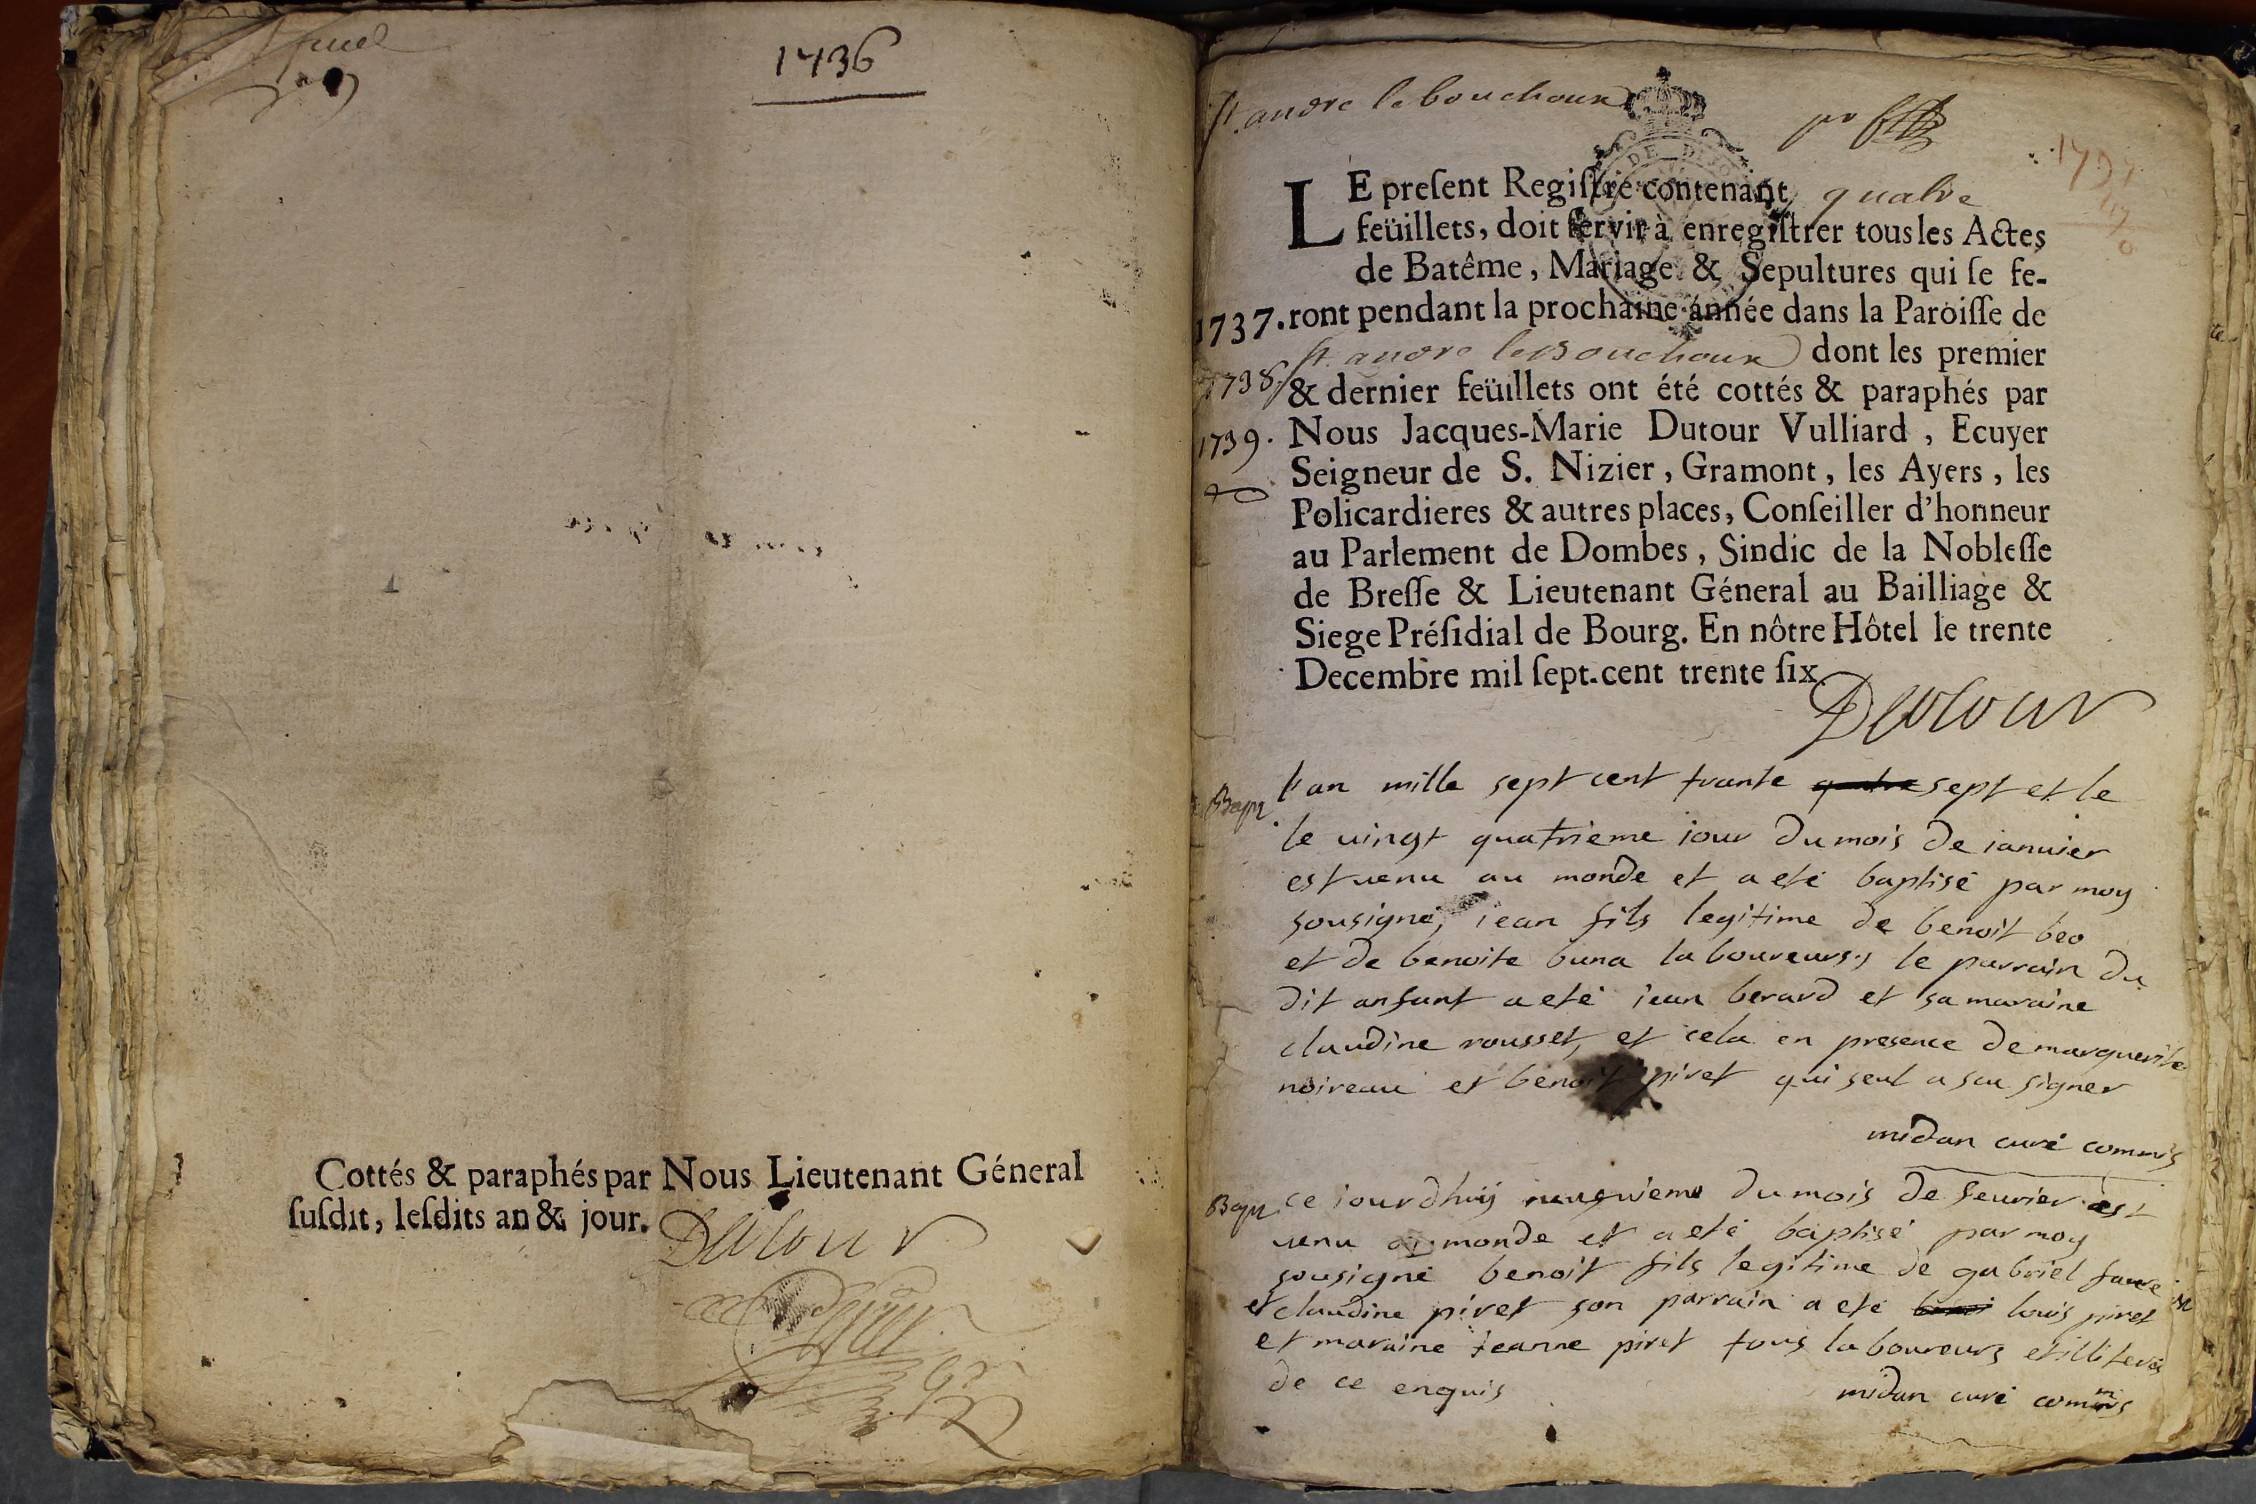 1736
Cottés & paraphés par Nous Lieutenant Géneral
ſuſdit, leſdits an & jour.
Dutour
St. andre le bouchoux
LE preſent Regiſtre contenant quatre
feüillets, doit ſervir à enregiſtrer tous les Actes
de Batême, Mariage & Sepultures qui ſe fe-
1737. ront pendant la prochaine année dans la Paroiſſe de
1738. St. andre le Bouchoux dont les premier
& dernier feüillets ont été cottés & paraphés par
1739. Nous Jacques-Marie Dutour Vulliard, Ecuyer
Seigneur de S. Nizier, Gramont, les Ayers, les
Policardieres & autres places, Conſeiller d'honneur
au Parlement de Dombes, Sindic de la Nobleſſe
de Breſſe & Lieutenant Géneral au Bailliage &
Siege Préſidial de Bourg. En nôtre Hôtel le trente
Decembre mil ſept.cent trente ſix.
Dutour
Bapt. l'an mille sept cent trante quatre sept et le
le uingt quatrieme iour du mois de ianuier
est uenu au monde et a eté baptisé par moy
sousigné, iean fils legitime de benoit beo
et de benoite buna laboureurs, le parrain du
dit anfant a eté iean berard et sa maraine
claudine rousset, et cela en presence de marguerite
noireau et benoit piret qui seul a sçu signer
midan curé commis
Bapt ce iourdhuy neuuieme du mois de feurier est
uenu au monde et a eté baptisé par moy
sousigné benoit fils legitime de gabriel faure
et claudine piret son parrain a eté louis piret
et maraine jeanne piret tous laboureurs et illiterés
de ce enquis
midan curé commis